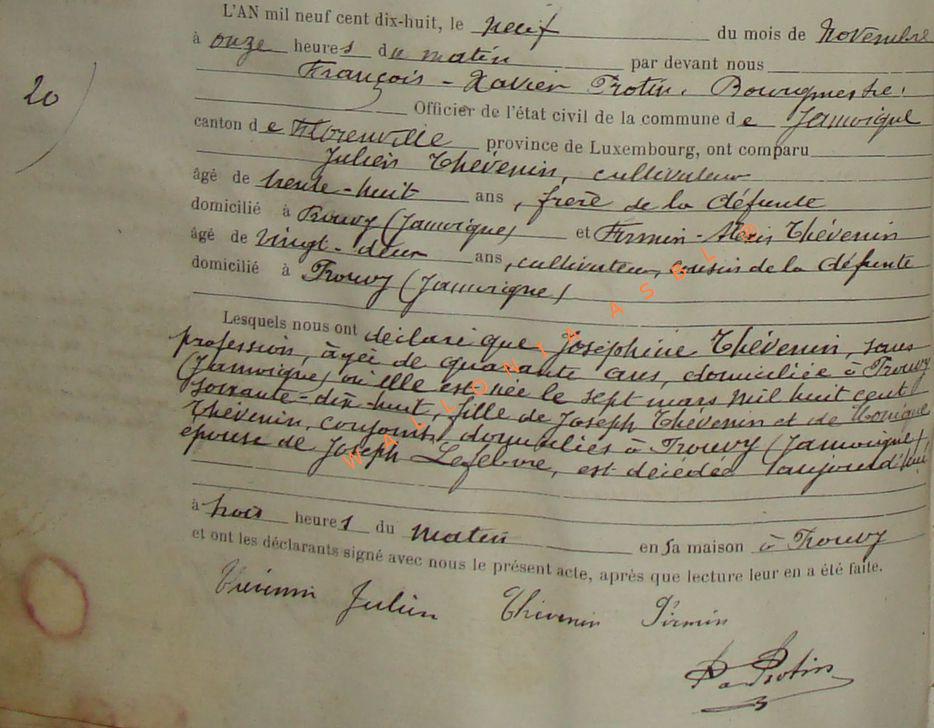 L'AN mil neuf cent dix-huit, le neuf du mois de Novembre
à onze heures du matin par devant nous
François - Xavier Protin, Bourgmestre,
20
Officier de l'état civil de la commune de Jamoigne
canton de Florenville province de Luxembourg, ont comparu
Julien Thévenin, cultivateur
âgé de trente-huit ans, frère de la défunte
domicilié à Prouvy (Jamoigne) et Firmin-Alexis Thévenin
âgé de vingt-deux ans, cultivateur, cousin de la défunte
domicilié à Prouvy (Jamoigne)
Lesquels nous ont déclaré que Joséphine Thévenin, sans
profession, âgée de quarante ans, domiciliée à Prouvy
(Jamoigne) où elle est née le sept mars mil huit cent
soixante-dix-huit, fille de Joseph Thévenin et de Monique
Thévenin, conjoints, domiciliés à Prouvy (Jamoigne),
épouse de Joseph Lefebvre, est décédée aujourd'hui
à trois heures du matin en sa maison à Prouvy
et ont les déclarants signé avec nous le présent acte, après que lecture leur en a été faite.
Thévenin Julien Thévenin Firmin
Protin
WALLONIA ASBL